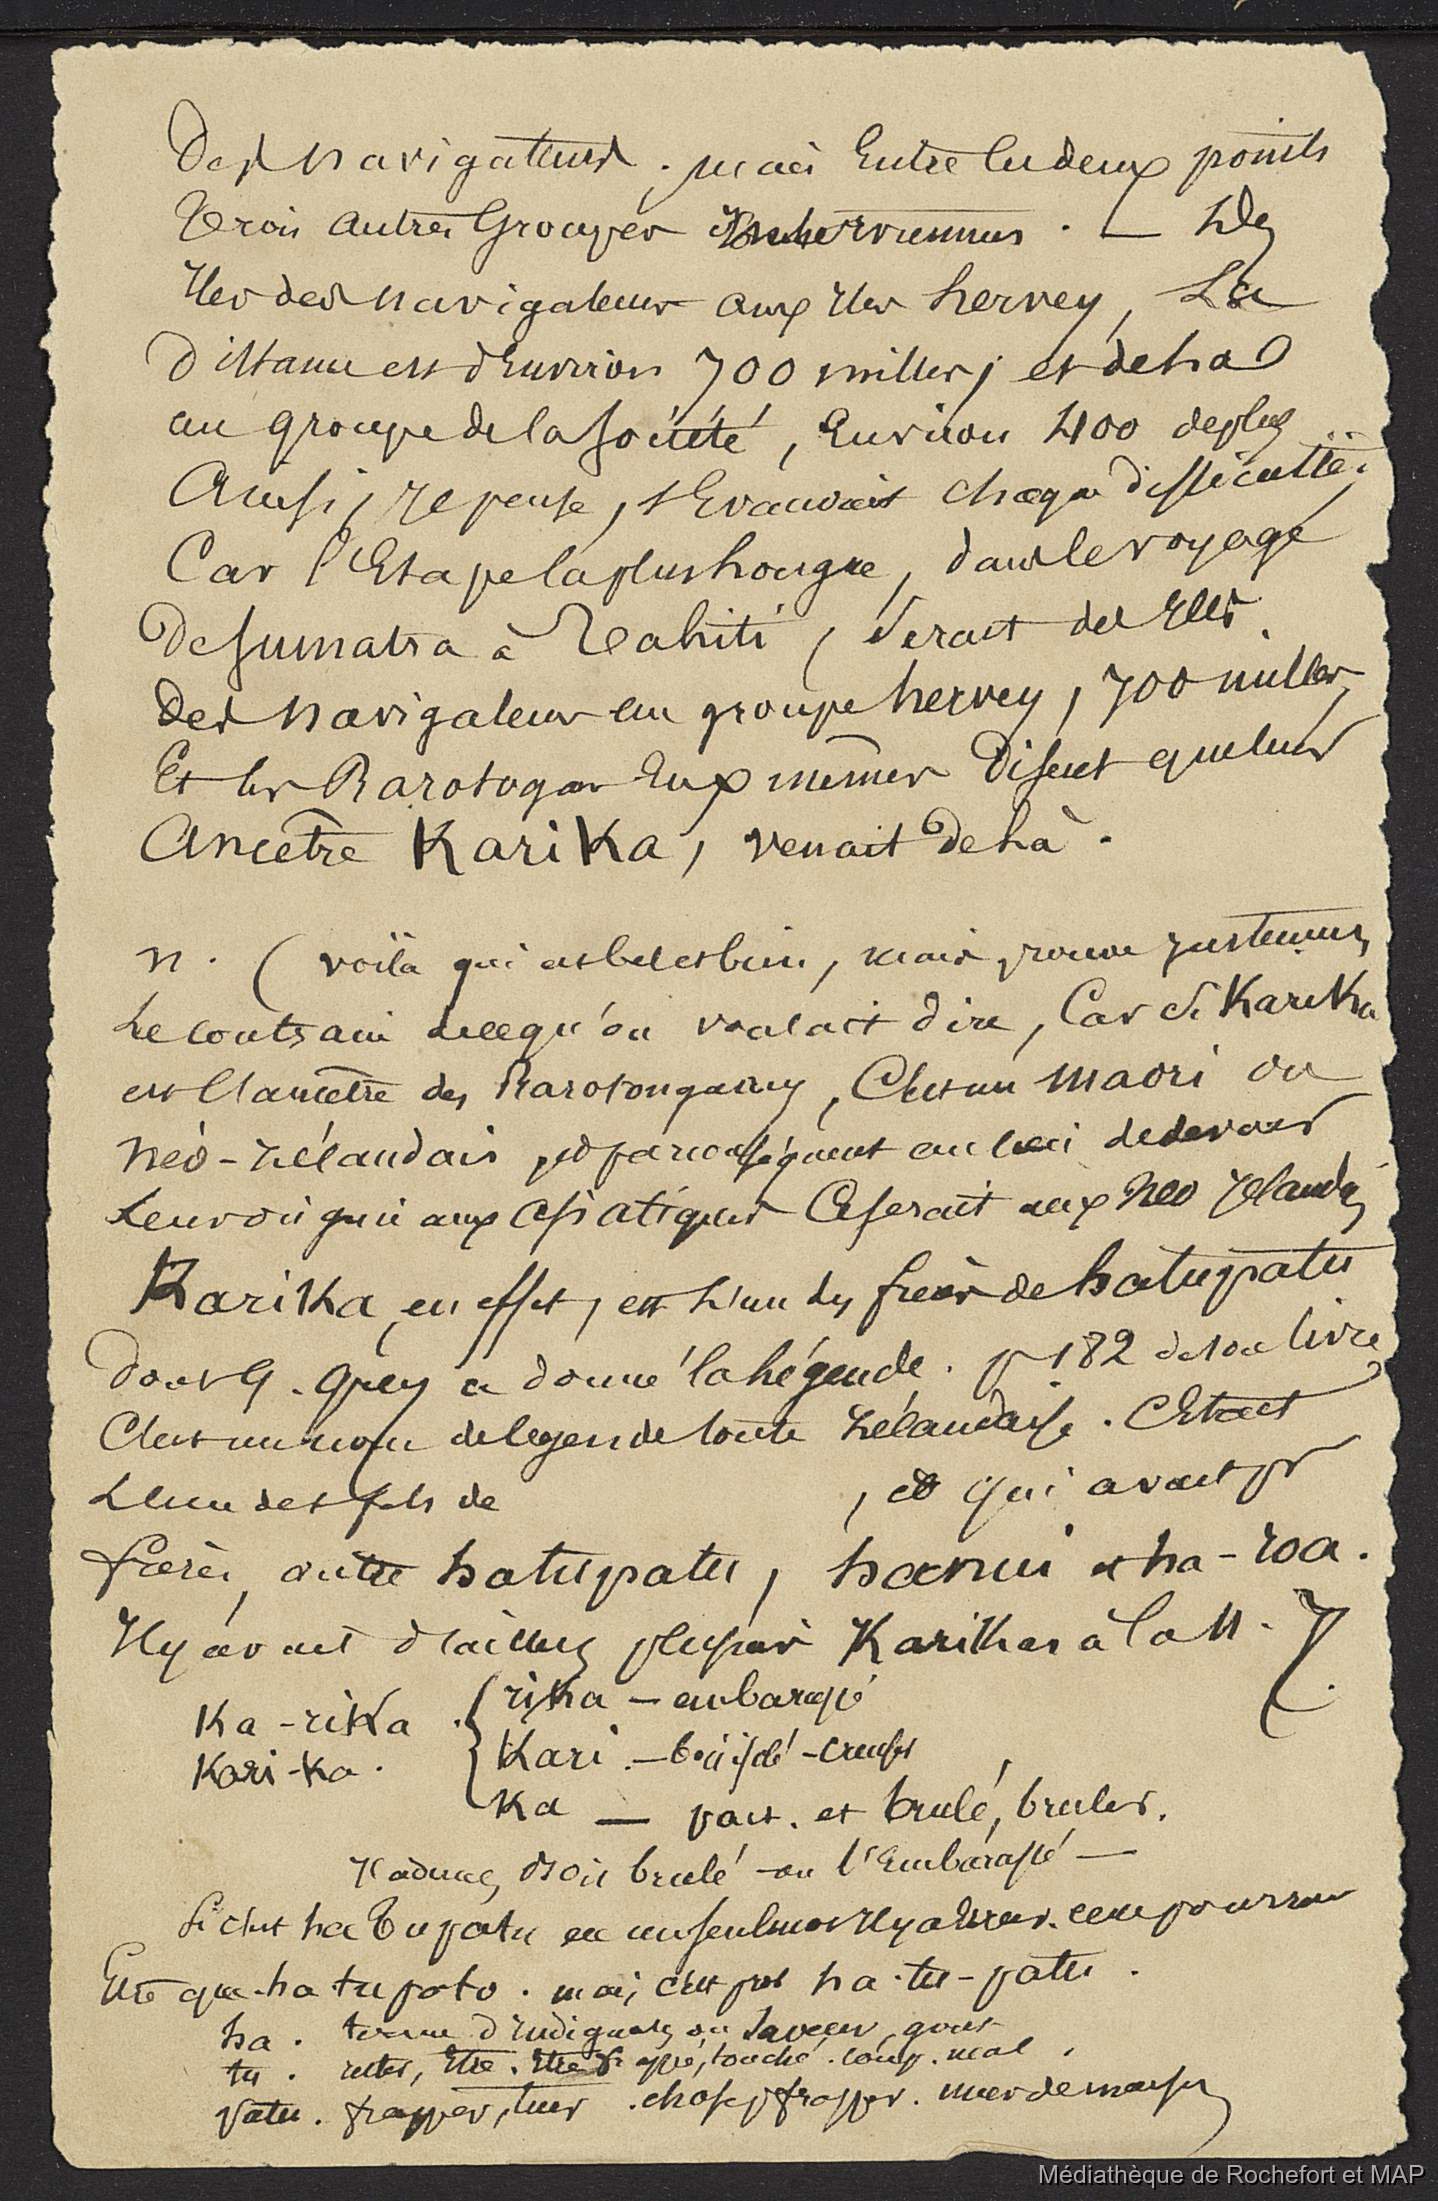 Des navigateurs. mais Entre les deux points
trois autres Groupes intervenus. — des
Iles des navigateurs aux Iles hervey, La
distance est d'Environ 700 milles; et de là
au groupe de la société, Environ 400 de plus
Ainsi, je pense, s'Evanouit chaque difficulté.
Car l'Etape la plus longue, dans le voyage
de sumatra à Tahiti, serait des Iles
des navigateurs au groupe hervey, 700 milles,
Et les Rarotogas Eux mêmes disent que leur
Ancêtre Karika, venait de là.
n. (voilà qui est bel et bien, mais prouve justement
le contraire de ce qu'on voulait dire, Car si Karika
est l'ancêtre des Rarotongans, C'est un maori ou
néo-zélandais, et par conséquent au lieu de devoir
leur origine aux asiatiques Ce serait aux néo zélandais
Karika, en effet, est l'un des frères de hatupatu
dont G. Grey a donné la légende. p 182 de son livre
C'est un nom de legende toute zélandaise. C'Etait
L'un des fils de , et qui avait pr
frères, outre hatupatu, hanui et ha-roa.
Il y avait d'ailleurs plusieurs Karikas à la N. Z.
Ka-rika. rika — embarassé
Kari-ka. Kari — creuser
Ka — part. et brulé, bruler.
bois brulé ou l'Embarassé —
Si c'est hatupatu en un seul mot Il y a ce ne pourrait
Etre que hatupoto. mais c'est pas ha-tu-patu.
ha. terme d'indignation ou saveur, gout
tu. rester, Etre. Etre frappé, touché. coup. mal.
patu. frapper, tuer. chose pr frapper. mur de maison